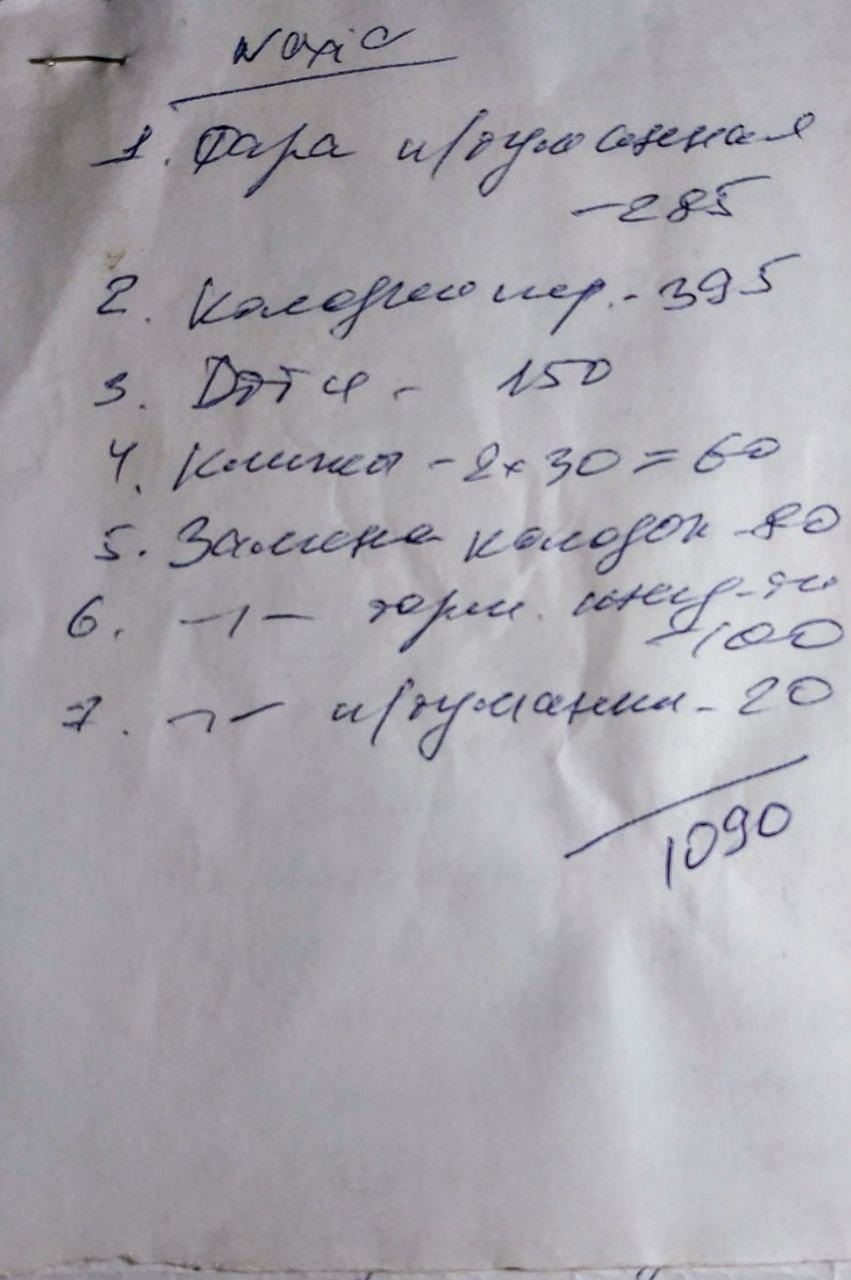 1. Фара п/туманная
-285
2. Колодки пер. - 395
3. DOT 4 - 150
4. Клипсы - 2 x 30 = 60
5. Замена колодок - 80
6. -"- торм. жид-ти
- 100
7. -"- п/туманки - 20
1090